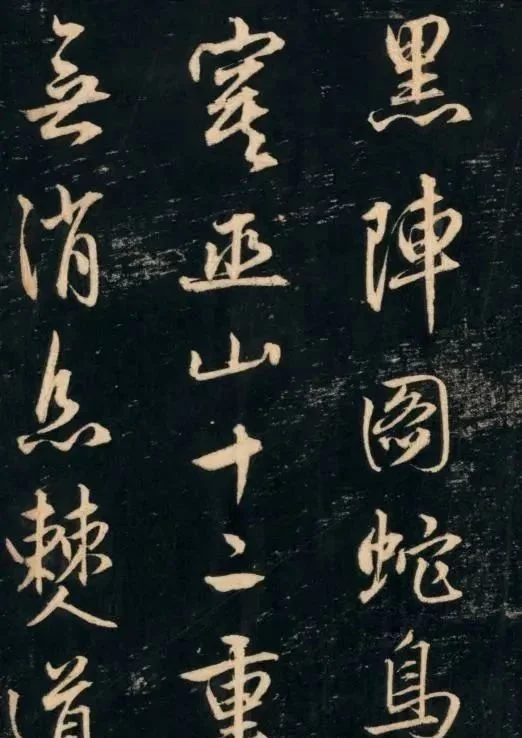 黑陣圖蛇鳥
寒巫山十二重
無消息僰道